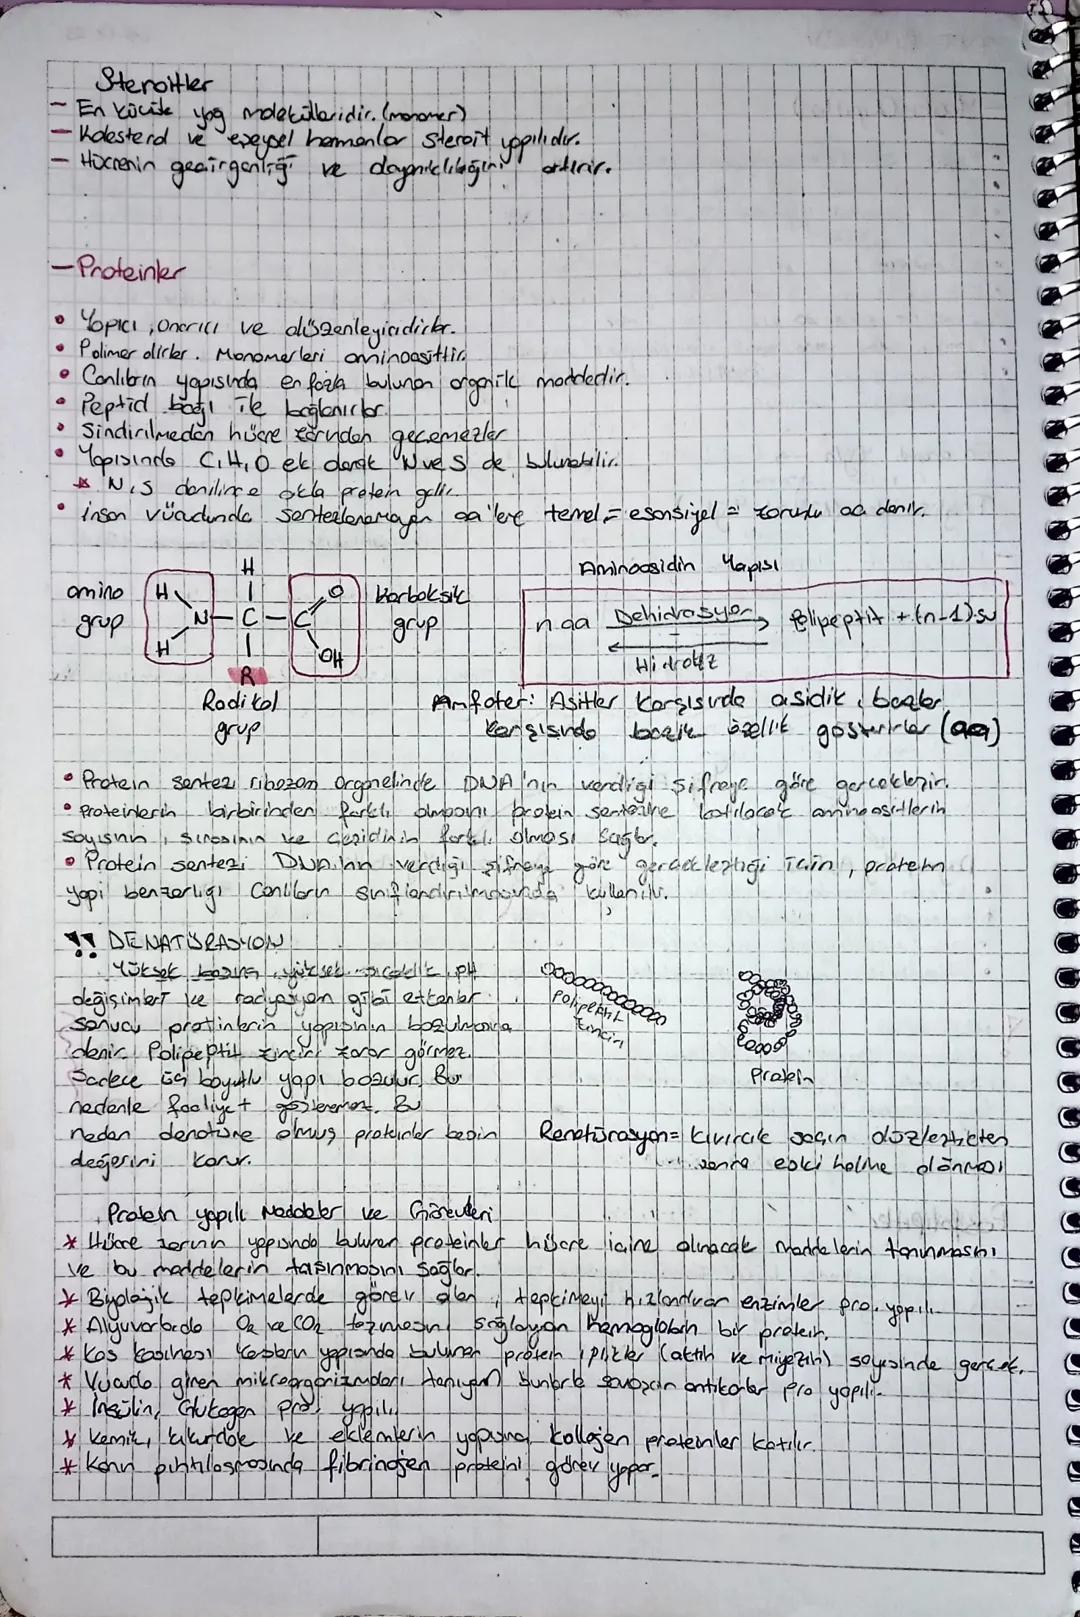 Steroitler
- En küçük yağ molekülleridir. (monomer)
- Kolesterol ve eşeysel hormonlar steroit yapılıdır.
- Hücrenin geçirgenliği ve dayanıklılığını artırır.
- Proteinler
• Yapıcı, onarıcı ve düzenleyicidirler.
• Polimerdirler. Monomerleri aminoasittir.
• Canlıların yapısında en fazla bulunan organik maddedir.
• Peptid bağı ile bağlanırlar.
• Sindirilmeden hücre zarından geçemezler
• Yapısında C, H, O ek olarak N ve S de bulunabilir.
* N, S denilince akla protein gelir.
• insan vücudunda sentezlenemeyen aa'lere temel = esansiyel = zorunlu aa denir.
Aminoasidin Yapısı
amino grup
H
H
N
H
C
R
C
O
OH
karboksik grup
Radikal grup
n.aa Dehidrasyon Polipeptit + (n-1) su
Hidroliz
Amfoter: Asitler karşısında asidik, bazlar
karşısında bazik özellik gösterirler (aa)
• Protein sentezi ribozom organelinde DNA'nın verdiği şifreye göre gerçekleşir.
• Proteinlerin birbirinden farklı olmasını protein sentezine katılacak aminoasitlerin
sayısının, sırasının ve çeşidinin farklı olması sağlar.
• Protein sentezi DNA'nın verdiği şifreye göre gerçekleştiği için, protein
yapı benzerliği canlıların sınıflandırılmasında kullanılır.
!! DENATÜRASYON
Yüksek basınç, yüksek sıcaklık, pH
değişimleri ve radyasyon gibi etkenler
sonucu protinlerin yapısının bozulmasına
denir. Polipeptit zinciri zarar görmez.
Sadece üç boyutlu yapı bozulur. Bu
nedenle faaliyet gösteremez. Bu
neden denatüre olmuş proteinler besin
değerini korur.
Polipeptit
Zinciri
Protein
Renatürasyon = Kıvırcık saçın düzleştikten
sonra eski haline dönmesi
Protein yapılı Maddeler ve Görevleri
* Hücre zarının yapısında bulunan proteinler hücre içine alınacak maddelerin tanınmasını
ve bu maddelerin taşınmasını sağlar.
* Biyolojik tepkimelerde görev alan, tepkimeyi hızlandıran enzimler pro. yapılı.
* Alyuvarlarda O2 ve CO2 taşımasını sağlayan hemoglobin bir protein.
* Kas kasılması kasların yapısında bulunan protein iplikler (aktin ve miyozin) sayesinde gerçek.
* Vücuda giren mikroorganizmaları tanıyan bunlarla savaşan antikorlar pro yapılı.
* İnsülin, Glukagon pro. yapılı.
* Kemik, kıkırdak ve eklemlerin yapısına kollajen proteinler katılır.
* Kanın pıhtılaşmasında fibrinojen proteini görev yapar.